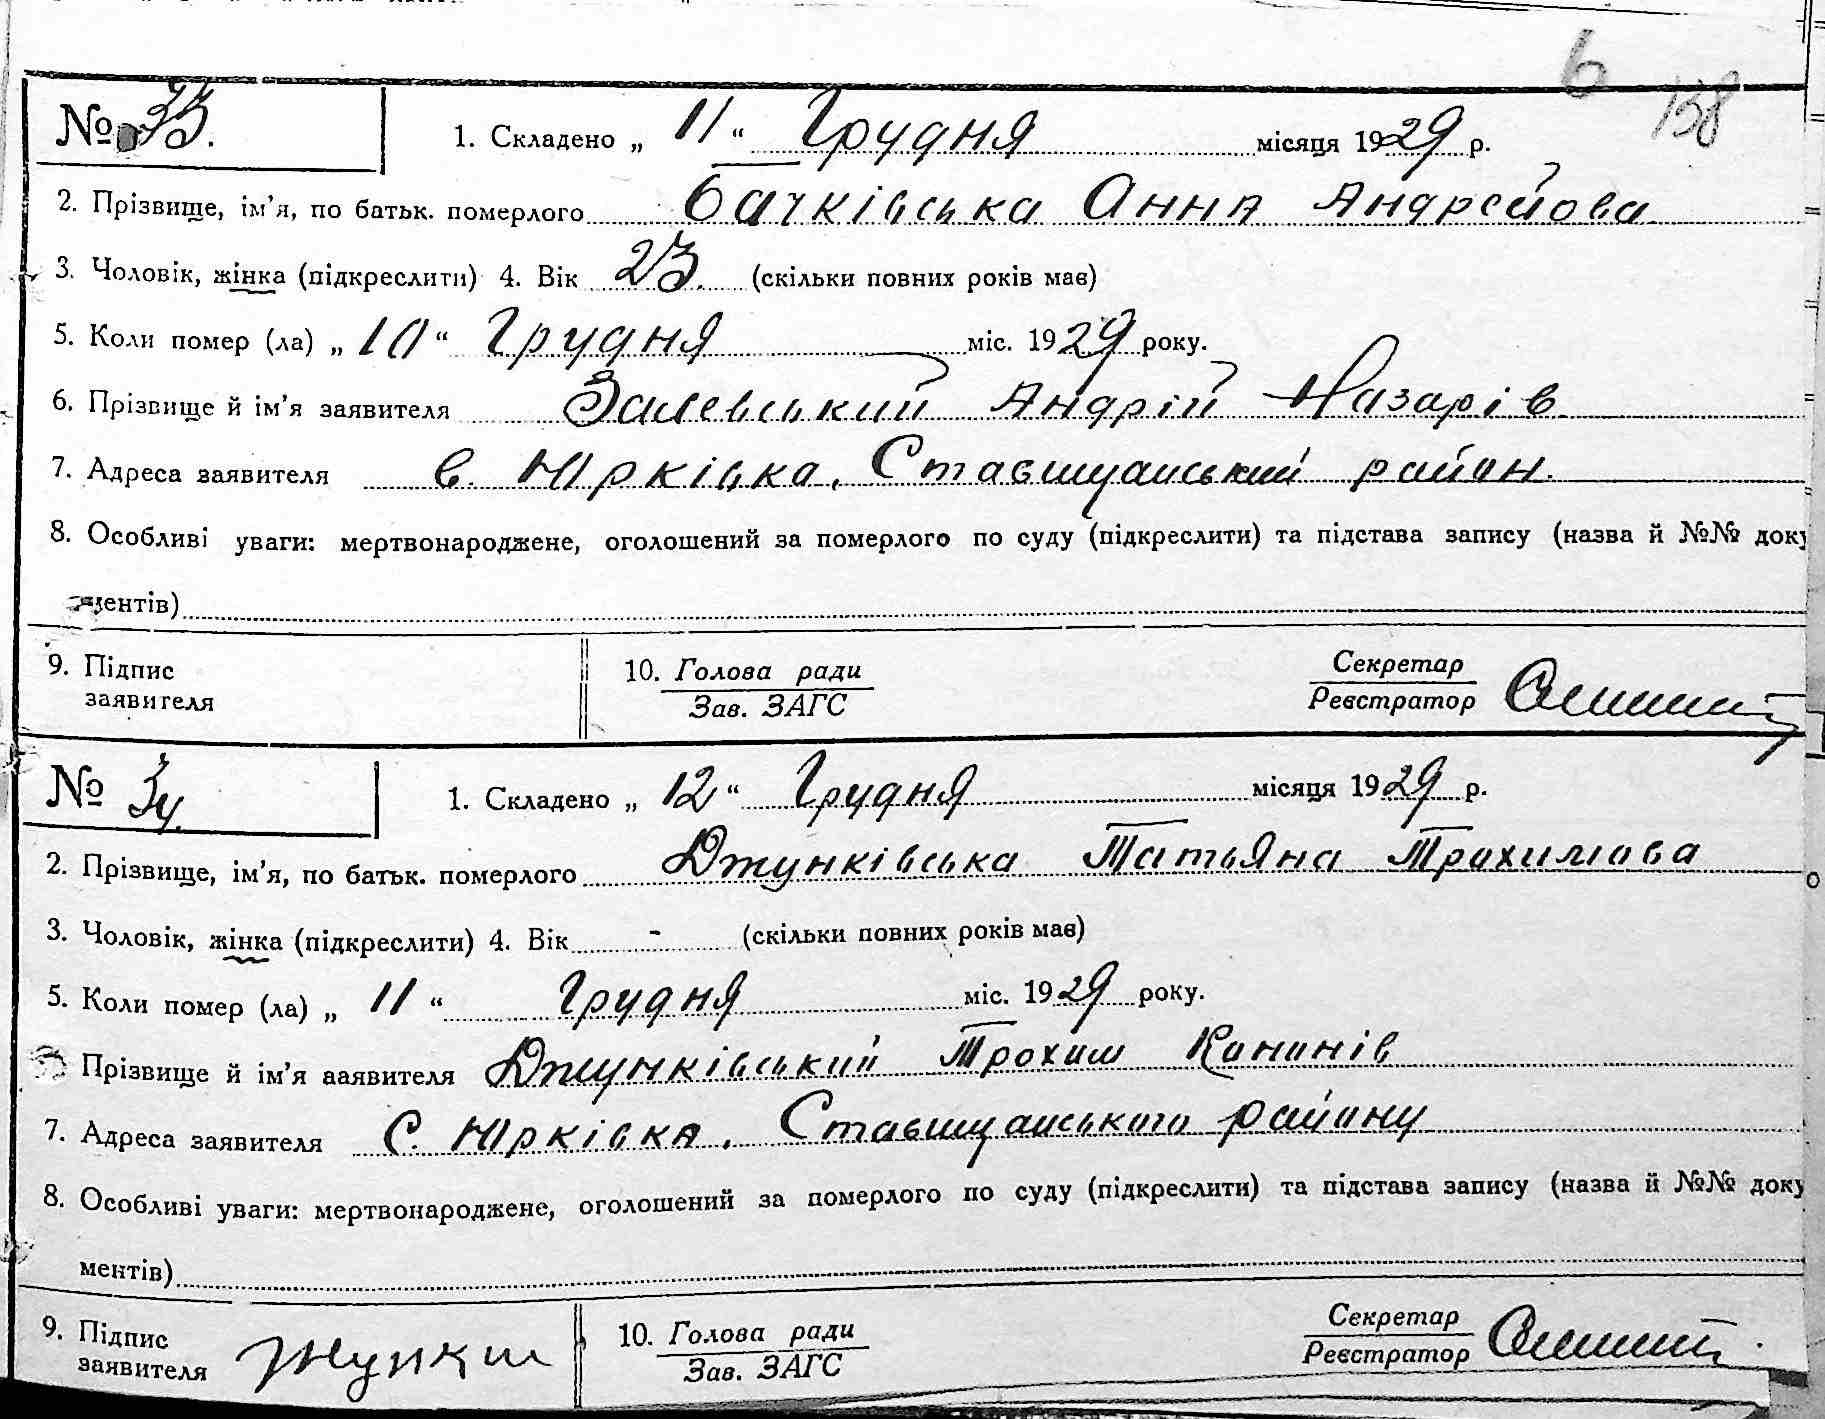 6
138
№ 33.
1. Складено „ 11 “ Грудня місяця 1929 р.
2. Прізвище, ім’я, по батьк. померлого Бачківська Анна Андрейова
3. Чоловік, жінка (підкреслити) 4. Вік 23. (скільки повних років має)
5. Коли помер (ла) „ 10 “ Грудня міс. 1929 року.
6. Прізвище й ім’я заявителя Залевський Андрій Назарів
7. Адреса заявителя с. Юрківка, Ставищанський район.
8. Особливі уваги: мертвонароджене, оголошений за померлого по суду (підкреслити) та підстава запису (назва й №№ доку
ментів)
9. Підпис заявителя
10. Голова ради
Зав. ЗАГС
Секретар
Реєстратор
№ 34.
1. Складено „ 12 “ Грудня місяця 1929 р.
2. Прізвище, ім’я, по батьк. померлого Джунківська Татьяна Трохимова
3. Чоловік, жінка (підкреслити) 4. Вік - (скільки повних років має)
5. Коли помер (ла) „ 11 “ Грудня міс. 1929 року.
Прізвище й ім’я заявителя Джунківський Трохим Кононів
7. Адреса заявителя С. Юрківка, Ставищанського району
8. Особливі уваги: мертвонароджене, оголошений за померлого по суду (підкреслити) та підстава запису (назва й №№ доку
ментів)
9. Підпис заявителя
10. Голова ради
Зав. ЗАГС
Секретар
Реєстратор